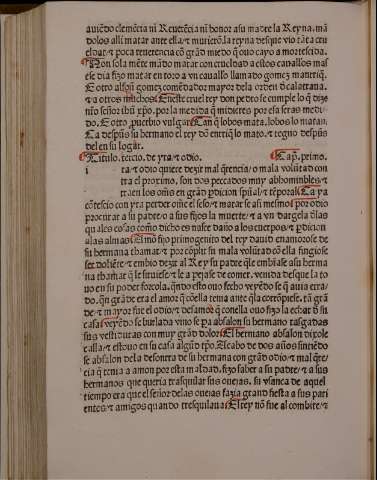 auiẽdo clemẽcia ni Reuerẽcia ni honor asu madre la Reyna. mã
dolos alli matar ante ella/⁊ muriero la reyna desque vio tãta cru
eldat/⁊ poca reuerencia cõ grãd miedo q̃ ouo cayo a mortescida.
Non sola mẽte mãdo matar con crueldad a estos cauallos mas
ese dia fizo matar en toro a vn cauallo llamado gomez manriq̃.
E otro alfoñ gomez comẽdador mayor dela orden d̃ calatraua.
⁊a otros muchos. En este cruel rey don pedro se cumple lo q̃ dize
nr̃o señor ihũ xp̃o. por la medida q̃ midieres por esa seras medi-
do. E otro prouerbio vulgar Can q̃ lobos mata. lobos lo matan.
Ca despũs su hermano el rey dõ enrriq̃ lo mato. ⁊ regno despũs
del en su logar.
Titulo. tercio. de yra/⁊ odio. Cap̃. primo.
i ra/⁊ odio quiece dezir mal q̃rencia/o mala volũtad con
tra el proximo. son dos peccados muy abhominbles/⁊
traen los oñs en grãd p̃dicion sp̃ũal/⁊ tẽporal. Ca ya
cõtescio con yra perder oñe el seso/⁊ matar se asi mesmo/por odio
procurar a su padre/o a sus fijos la muerte/⁊ a vn dargela d̃las
quales cosas como dicho es nasce daño alos cuerpos/⁊ p̃dicion
alas almas Amõ fijo primogenito del rey dauid enamorose de
su hermana thamar/⁊ por cõplir su mala volũtad cõ ella fingiose
ser doliẽte/⁊ embio dezir al Rey su padre q̃le embiase asu herma
na thamar q̃ le siruiese/⁊ le a parejase de comer. venida desque la to
uo en su poder forçola. q̃ndo esto ouo fecho veyẽdo se q̃ auia erra-
do. q̃n grãde era el amor q̃ cõella tenia ante q̃la corrõpiese. tã grã
de/⁊ mayor fue el odio/⁊ desamor q̃ conella ouo fizo la echar d̃ su
casa/veyẽdo se burlada vino se pa absalon su hermano rasgadas
sus vestiduras con muy grãd dolor. El hermano absalon dixole
calla/⁊ estouo en su casa algũd tp̃o. Acabo de dos años sintiẽdo
se absalon dela desonrra de su hermana con grãd odio/⁊ mal q̃re-
cia q̃ tenia a amon por esta maldad. fizo saber a su padre/⁊ a sus
hermanos que queria trasquilar sus ouejas. su vsança de aquel
tiempo era que el señor delas ouejas fazia grand fiesta a sus pari
entes/⁊ amigos quando tresquilaua. El rey nõ fue al combite/⁊